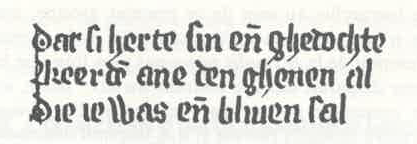 Dat si herte sin en̄ ghedochte
Keerdē ane den ghenen al
Die ie was en̄ bliuen sal